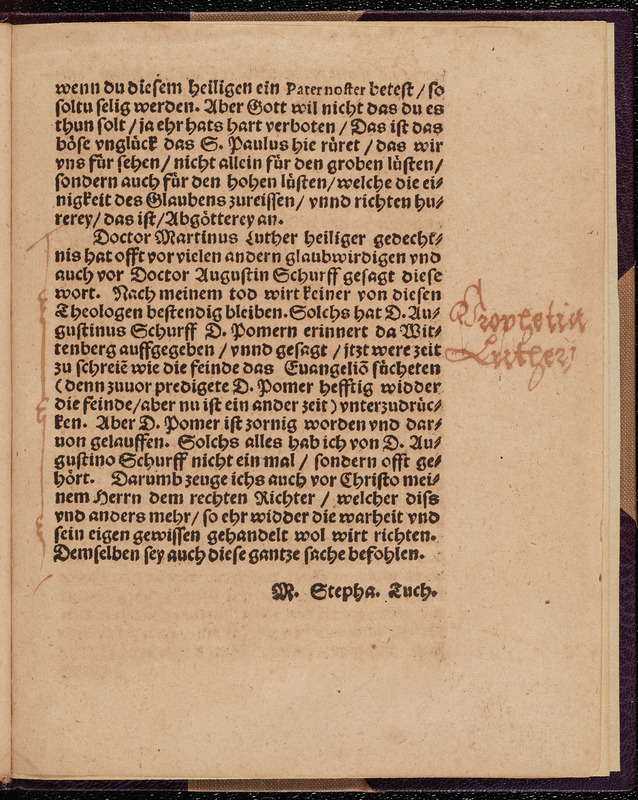 wenn du diesem heiligen ein Pater noster betest / so
soltu selig werden. Aber Gott wil nicht das du es
thun solt / ja ehr hats hart verboten / Das ist das
böse vnglück das S. Paulus hie rüret / das wir
vns für sehen / nicht allein für den groben lüsten /
sondern auch für den hohen lüsten / welche die ei⸗
nigkeit des Glaubens zureissen / vnnd richten hu⸗
rerey / das ist / Abgötterey an.
Doctor Martinus Luther heiliger gedecht⸗
nis hat offt vor vielen andern glaubwirdigen vnd
auch vor Doctor Augustin Schurff gesagt diese
wort. Nach meinem tod wirt keiner von diesen
Theologen bestendig bleiben. Solchs hat D. Au⸗
gustinus Schurff D. Pomern erinnert da Wit⸗
tenberg auffgegeben / vnnd gesagt / itzt were zeit
zu schreiē wie die feinde das Euangeliō sücheten
(denn zuuor predigete D. Pomer hefftig widder
die feinde / aber nu ist ein ander zeit) vnterzudrüc⸗
ken. Aber D. Pomer ist zornig worden vnd dar⸗
uon gelauffen. Solchs alles hab ich von D. Au⸗
gustino Schurff nicht ein mal / sondern offt ge⸗
hört. Darumb zeuge ichs auch vor Christo mei⸗
nem Herrn dem rechten Richter / welcher diss
vnd anders mehr / so ehr widder die warheit vnd
sein eigen gewissen gehandelt wol wirt richten.
Demselben sey auch diese gantze sache befohlen.
M. Stepha. Tuch.
Prophetia
Lutheri